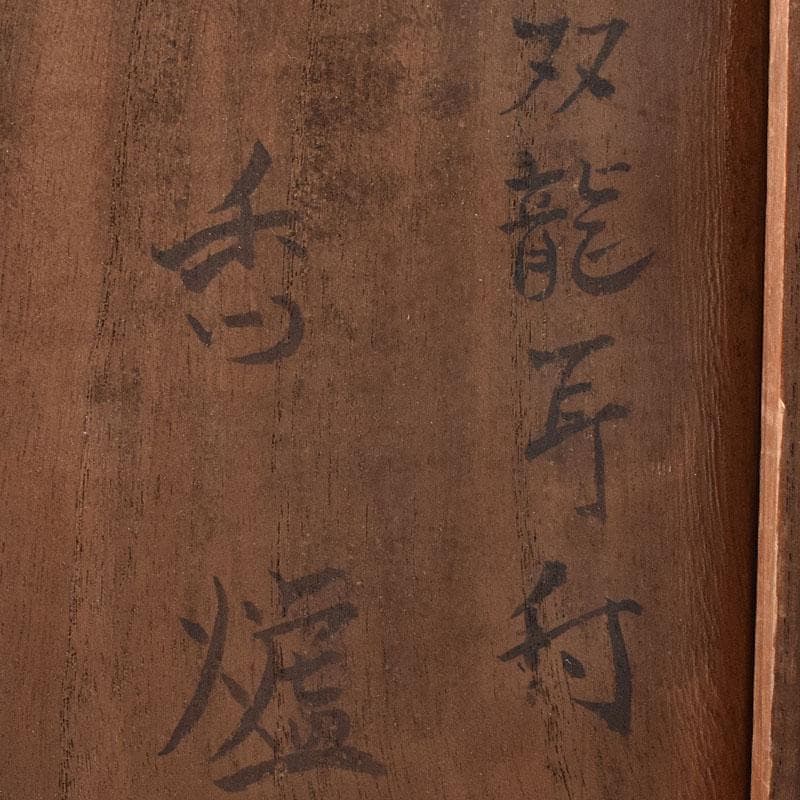 双龍耳付
香爐